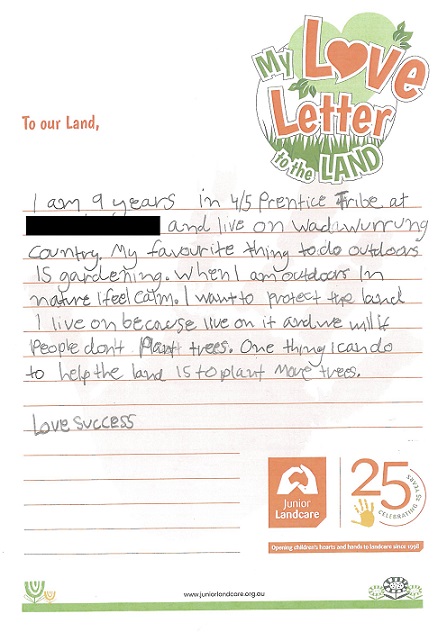 My Love
Letter
to the LAND
To our Land,
I am 9 years in 4/5 Prentice Tribe at
and live on Wadawurrung
Country. My favourite thing to do outdoors
is gardening. When I am outdoors in
nature I feel calm. I want to protect the land
I live on because live on it and we will if
People don't Plant trees. One thing I can do
to help the land is to plant More trees.
Love Success
Junior
Landcare
25
CELEBRATING 25 YEARS
Opening children's hearts and hands to landcare since 1998
www.juniorlandcare.org.au